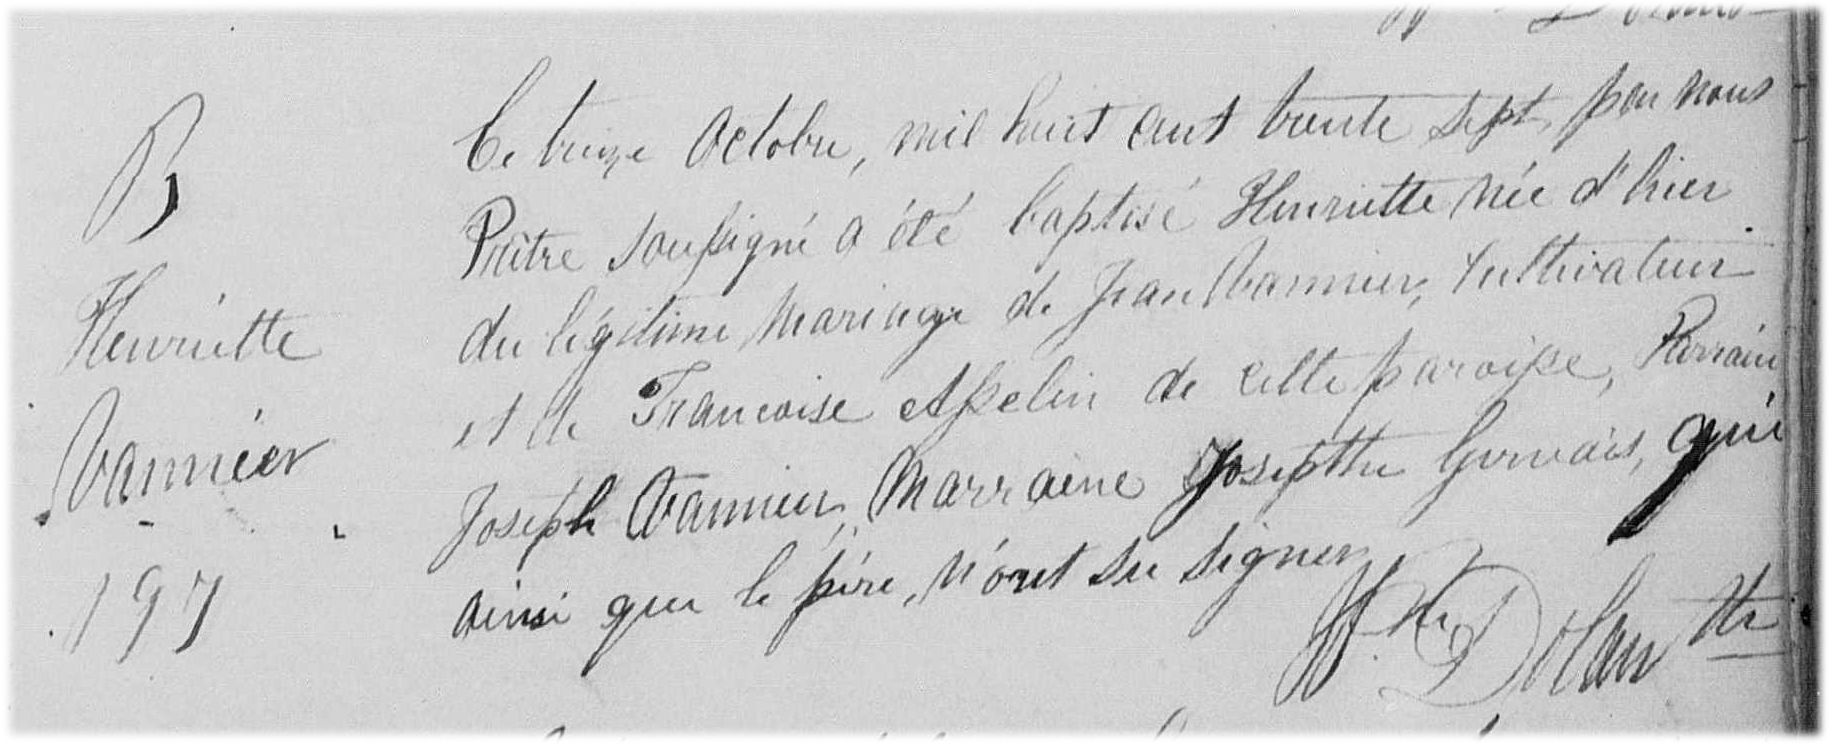 B
Henriette
Vannier
197
Ce treize Octobre, mil huit cent trente sept, par nous
Prêtre soussigné a été baptisé Henriette née d'hier
du légitime Mariage de Jean Vannier, Cultivateur
et de Francoise Asselin de cette paroisse, Parrain
Joseph Vannier, Marraine Josepthe Gervais, qui
ainsi que le père, n'ont su signer
Dolan Ptre